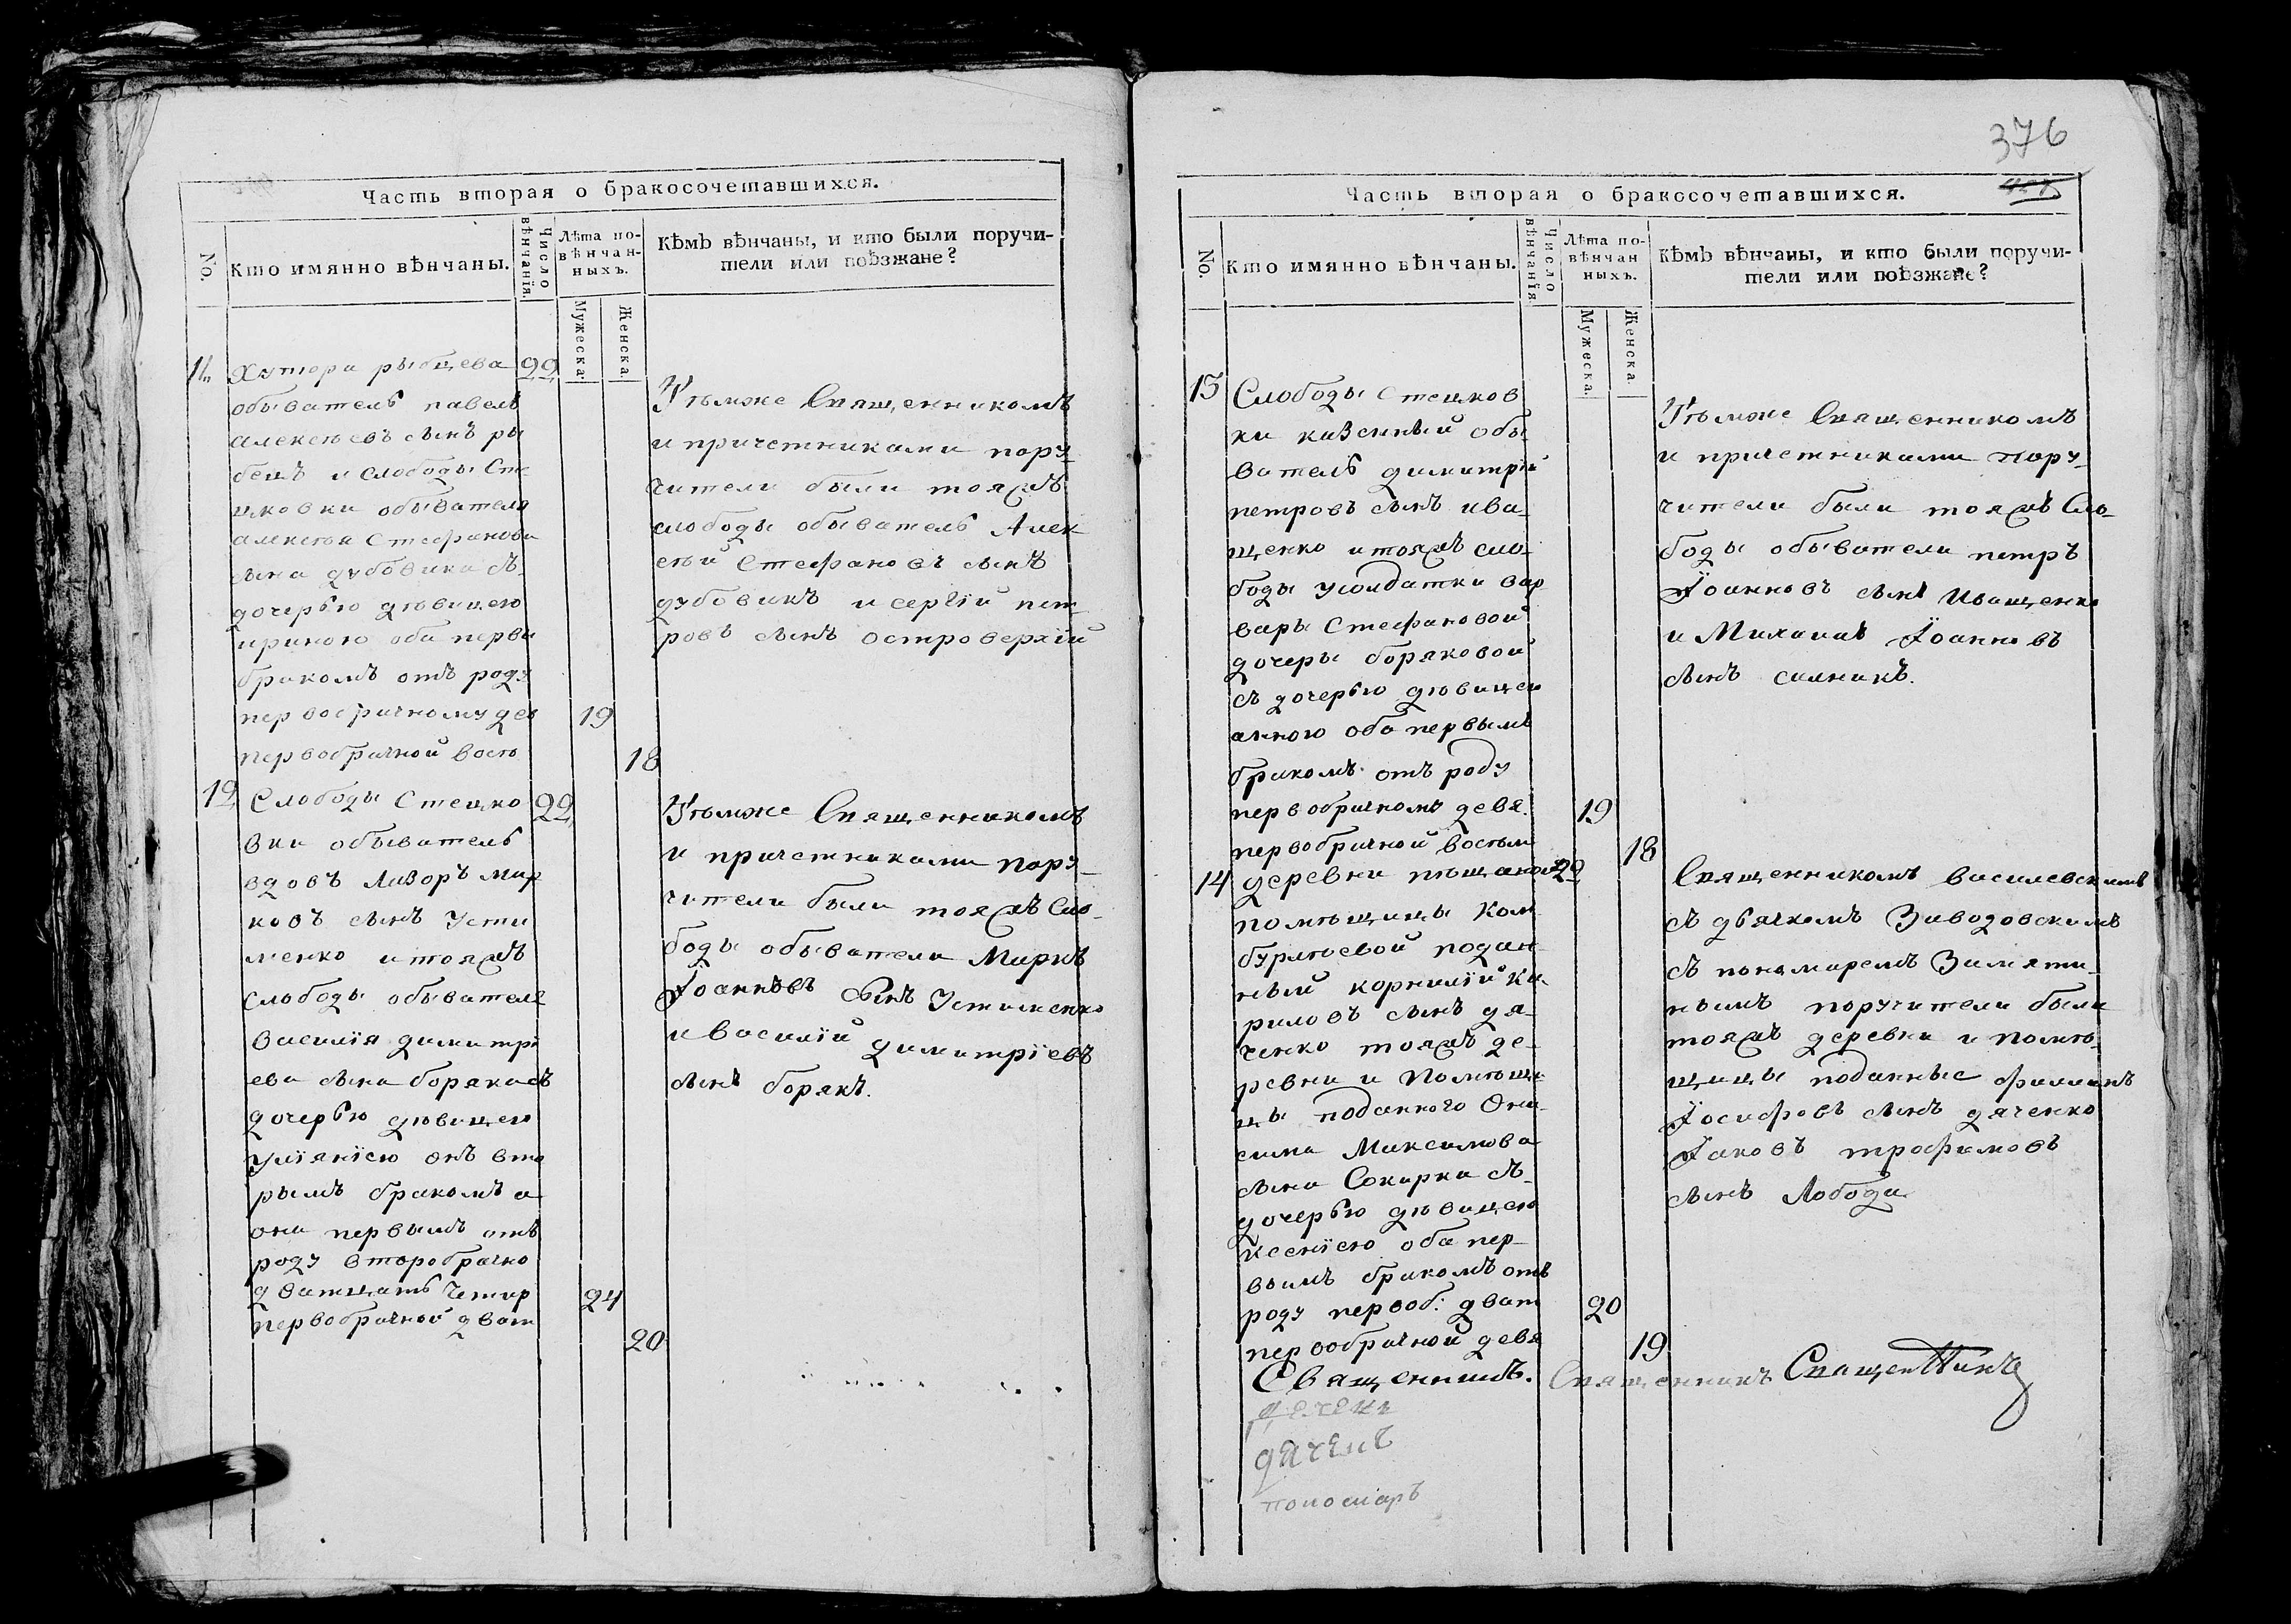 Часть вторая о бракосочетавшихся.
No.
Кто имянно вѣнчаны.
Число вѣнчанїя.
Лѣта по-
вѣнчан-
ныхъ.
Мужеска.
Женска.
Кѣмъ вѣнчаны, и кто были поручи-
тели или поѣзжане?
11 Хутора рыбцева 22
обыватель павелъ
алексѣевъ сынъ ры
бецъ и слободы Сте
цковки обывателя
алексѣя Стефанова
сына дубовика съ
дочерью дѣвицею
ириною оба первы
бракомъ отъ роду
первобрачному дев 19
первобрачной восѣ 18
Тѣмже Священникомъ
и причетниками пору-
чители были тояжъ
слободы обыватель Алек
сѣй Стефановъ сынъ
дубовикъ и сергїй пет
ровъ сынъ островерхїй
12 Слободы Стецко 22
вки обыватель
вдовъ Лазоръ мар
ковъ сынъ Усти
менко итояжъ
слободы обывателя
василїя димитрї
ева сына борякасъ
дочерью дѣвицею
Улїянїею онъ вто
рымъ бракомъ а
она первымъ отъ
роду второбрачно
дватцать четир 24
первобрачной дват 20
Тѣмже Священникомъ
и причетниками пору-
чители были тояжъ Сло-
боды обыватели Маркъ
Їоанновъ сынъ Устименко
и василїй димитрїевъ
сынъ борякъ.
376
Часть вторая о бракосочетавшихся.
No.
Кто имянно вѣнчаны.
Число вѣнчанїя
Лѣта по-
вѣнчан
ныхъ.
Мужеска.
Женска.
Кѣмъ вѣнчаны, и кто были поручи-
тели или поѣзжане?
13 Слободы Стецков
ки казенный обы
ватель димитрїй
петровъ сынъ ива-
щенко итояжъ сло-
боды усолдатки вар
вары Стефановой
дочеры боряковой
съ дочерью дѣвицею
анною оба первымъ
бракомъ отъ роду
первобрачному девя. 19
первобрачной восѣм 18
Тѣмже Священникомъ
и причетниками пору-
чители были тояжъ Сло-
боды обыватели петръ
Їоанновъ сынъ Иващенко
и Михаилъ Їоанновъ
сынъ
14 деревни 22
помѣщицы Ком
бурлѣевой подан
ный корнилїй Ки-
риловъ сынъ дя-
ченко тояжъ де-
ревни и помѣщи
цы поданного Они
сима Максимова
сына Сокирка съ
дочерью дѣвицею
ксенїею оба пер-
вымъ бракомъ отъ
роду первоб: дват 20
первобрачной девя 19
Священникомъ василевскимъ
съ дьячкомъ Заводовскимъ
съ пономаремъ Замяти-
нымъ поручители были
тояжъ деревни и помѣ-
щицы поданные филипъ
Їосифовъ сынъ дяченко
Їаковъ трофимовъ
сынъ Лобода
Священникъ. Священникъ Священникъ
дячекъ
пономаръ